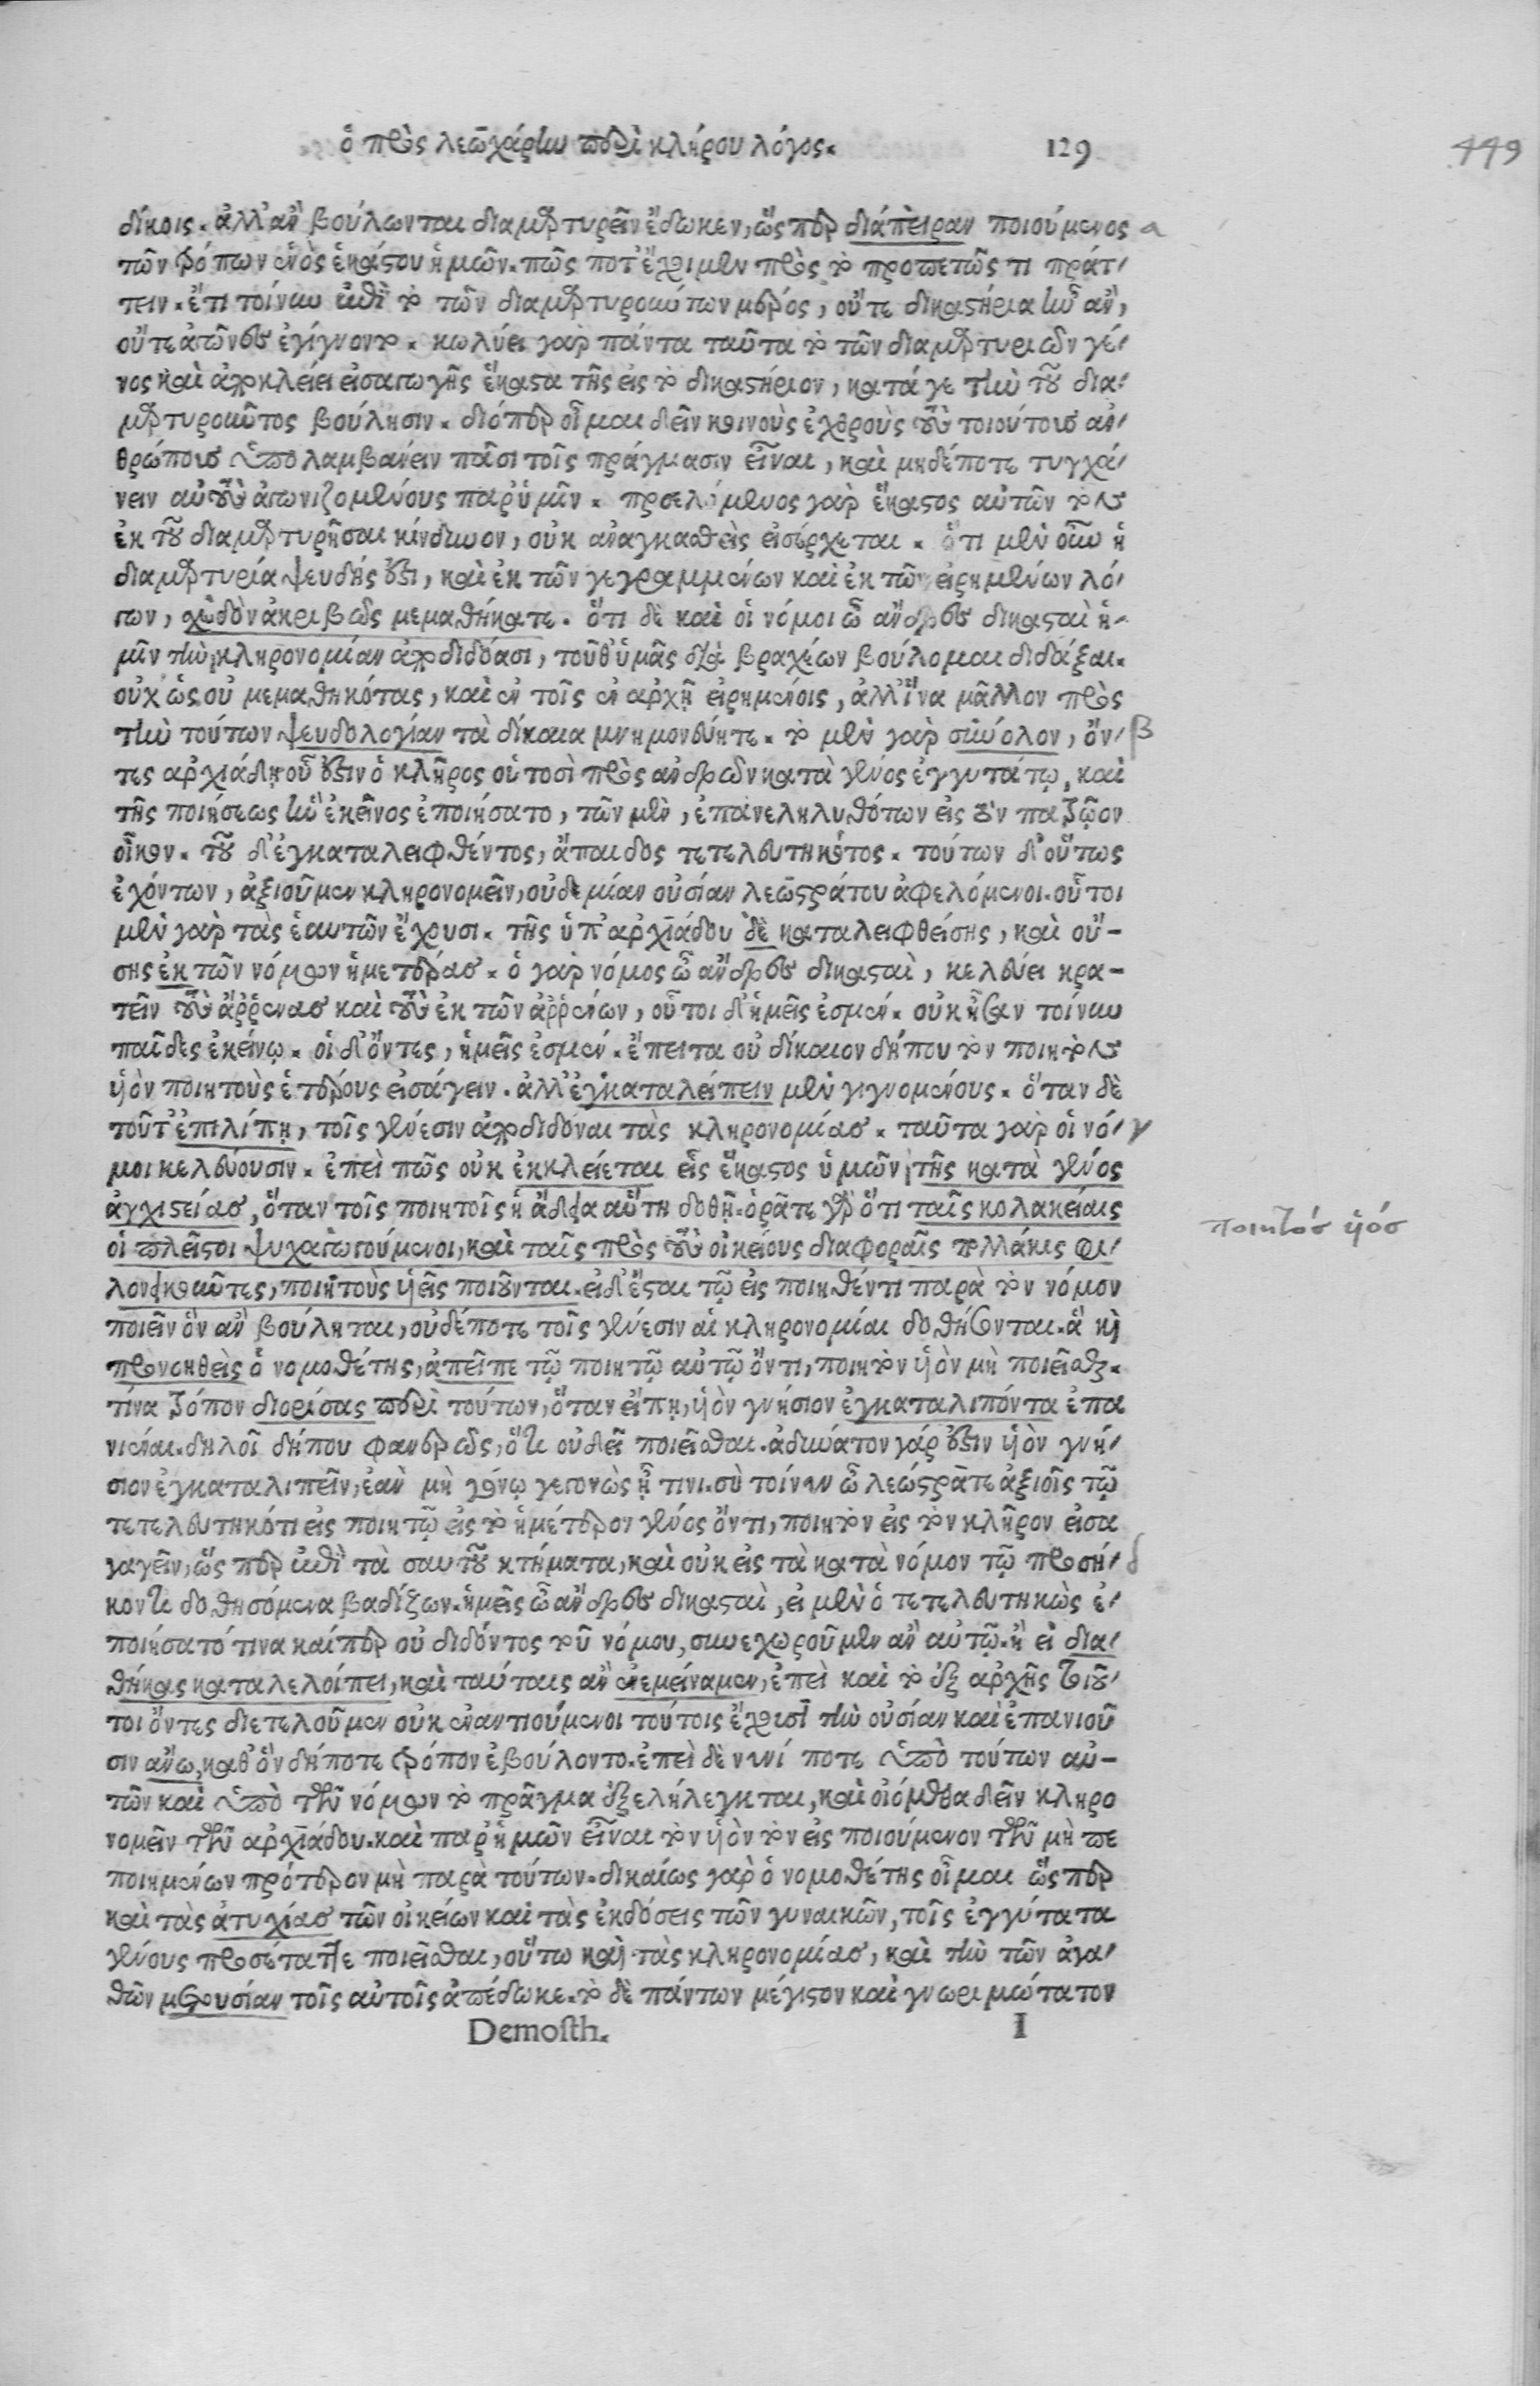 ὁ πρὸς λεωχάρην περὶ κλήρου λόγος. 129
449
δίκοις. ἀλλ' ἂν βούλωνται διαμαρτυρεῖν ἔδωκεν, ὥς περ διάπειραν ποιούμενος α
τῶν τρόπων ἑνὸς ἑκάστου ἡμῶν. πῶς ποτ' ἔχοιμεν πρὸς τὸ προπετῶς τι πράτ-
τειν. ἔτι τοίνυν ἐπὶ τὸ τῶν διαμαρτυρούντων μέρος, οὔτε δικαστήρια ἦν ἂν,
οὔτε ἀγῶνες ἐγίγνοντο. κωλύει γὰρ πάντα ταῦτα τὸ τῶν διαμαρτυριῶν γέ-
νος καὶ ἀποκλείει εἰσαγωγῆς ἕκαστα τῆς εἰς τὸ δικαστήριον, κατά γε τὴν τοῦ δια-
μαρτυροῦντος βούλησιν. διόπερ οἶμαι δεῖν κοινοὺς ἐχθροὺς τοὺς τοιούτους ἀν-
θρώποις ὑπολαμβάνειν πᾶσι τοῖς πράγμασιν εἶναι, καὶ μηδέποτε τυγχά-
νειν αὐτοὺς ἀγωνιζομένους παρ' ὑμῖν. προελόμενος γὰρ ἕκαστος αὐτῶν τὸν
ἐκ τοῦ διαμαρτυρῆσαι κίνδυνον, οὐκ ἀναγκασθεὶς εἰσέρχεται. ὅτι μὲν οὖν ἡ
διαμαρτυρία ψευδής ἐστι, καὶ ἐκ τῶν γεγραμμένων καὶ ἐκ τῶν εἰρημένων λό-
γων, σχεδὸν ἀκριβῶς μεμαθήκατε. ὅτι δὲ καὶ οἱ νόμοι ὦ ἄνδρες δικασταὶ ἡ-
μῖν τὴν κληρονομίαν ἀποδιδόασι, τοῦθ' ὑμᾶς διὰ βραχέων βούλομαι διδάξαι.
οὐχ ὡς οὐ μεμαθηκότας, καὶ ἐν τοῖς ἐν ἀρχῇ εἰρημένοις, ἀλλ' ἵνα μᾶλλον πρὸς
τὴν τούτων ψευδολογίαν τὰ δίκαια μνημονεύητε. τὸ μὲν γὰρ σύνολον, ὄν- β
τες ἀρχιάδῃ οὗ ἐστιν ὁ κλῆρος οὑτοσὶ πρὸς ἀνδρῶν κατὰ γένος ἐγγυτάτω, καὶ
τῆς ποιήσεως ἣν ἐκεῖνος ἐποιήσατο, τῶν μὲν, ἐπανεληλυθότων εἰς τὸν πατρῷον
οἶκον. τοῦ δ' ἐγκαταλειφθέντος, ἄπαιδος τετελευτηκότος. τούτων δ' οὕτως
ἐχόντων, ἀξιοῦμεν κληρονομεῖν, οὐδεμίαν οὐσίαν λεωστράτου ἀφελόμενοι. οὗτοι
μὲν γὰρ τὰς ἑαυτῶν ἔχουσι. τῆς ὑπ' ἀρχιάδου δὲ καταλειφθείσης, καὶ οὔ-
σης ἐκ τῶν νόμων ἡμετέρας. ὁ γὰρ νόμος ὦ ἄνδρες δικασταὶ, κελεύει κρα-
τεῖν τοὺς ἄῤῥενας καὶ τοὺς ἐκ τῶν ἀῤῥένων, οὗτοι δ' ἡμεῖς ἐσμέν. οὐκ ἦσαν τοίνυν
παῖδες ἐκείνῳ. οἱ δ' ὄντες, ἡμεῖς ἐσμέν. ἔπειτα οὐ δίκαιον δήπου τὸν ποιητὸν
ὑὸν ποιητοὺς ἑτέρους εἰσάγειν. ἀλλ' ἐγκαταλείπειν μὲν γιγνομένους. ὅταν δὲ
τοῦτ' ἐπιλίπῃ, τοῖς γένεσιν ἀποδιδόναι τὰς κληρονομίας. ταῦτα γὰρ οἱ νό- γ
μοι κελεύουσιν. ἐπεὶ πῶς οὐκ ἐκκλείεται εἷς ἕκαστος ὑμῶν τῆς κατὰ γένος
ἀγχιστείας, ὅταν τοῖς ποιητοῖς ἡ ἄδεια αὕτη δοθῇ. ὁρᾶτε γὰρ ὅτι ταῖς κολακείαις
ποιητός ὑός
οἱ πλεῖστοι ψυχαγωγούμενοι, καὶ ταῖς πρὸς τοὺς οἰκείους διαφοραῖς πολλάκις φι-
λονεικοῦντες, ποιητοὺς ὑεῖς ποιοῦνται. εἰ δ' ἔσται τῷ εἰσποιηθέντι παρὰ τὸν νόμον
ποιεῖν ὃν ἂν βούληται, οὐδέποτε τοῖς γένεσιν αἱ κληρονομίαι δοθήσονται. ἃ καὶ
προνοηθεὶς ὁ νομοθέτης, ἀπεῖπε τῷ ποιητῷ αὐτῷ ὄντι, ποιητὸν ὑὸν μὴ ποιεῖσθαι.
τίνα τρόπον διορίσας περὶ τούτων, ὅταν εἴπῃ, ὑὸν γνήσιον ἐγκαταλιπόντα ἐπα
νιέναι. δηλοῖ δήπου φανερῶς, ὅτι οὐ δεῖ ποιεῖσθαι. ἀδύνατον γάρ ἐστιν ὑὸν γνή-
σιον ἐγκαταλιπεῖν, ἐὰν μὴ γόνῳ γεγονὼς ᾖ τινι. σὺ τοίνυν ὦ λεώστρατε ἀξιοῖς τῷ
τετελευτηκότι εἰς ποιητῷ εἰς τὸ ἡμέτερον γένος ὄντι, ποιητὸν εἰς τὸν κλῆρον εἰσα
γαγεῖν, ὥς περ ἐπὶ τὰ σαυτοῦ κτήματα, καὶ οὐκ εἰς τὰ κατὰ νόμον τῷ προσή- δ
κοντι δοθησόμενα βαδίζων. ἡμεῖς ὦ ἄνδρες δικασταὶ, εἰ μὲν ὁ τετελευτηκὼς ἐ-
ποιήσατό τινα καίπερ οὐ διδόντος τοῦ νόμου, συνεχωροῦμεν ἂν αὐτῷ. ἢ εἰ δια-
θήκας καταλελοίπει, καὶ ταύταις ἂν ἐνεμείναμεν, ἐπεὶ καὶ τὸ ἐξ ἀρχῆς τοιοῦ-
τοι ὄντες διετελοῦμεν οὐκ ἐναντιούμενοι τούτοις ἔχουσι τὴν οὐσίαν καὶ ἐπανιοῦ
σιν ἄνω, καθ' ὃν δήποτε τρόπον ἐβούλοντο. ἐπεὶ δὲ νυνί ποτε ὑπὸ τούτων αὐ-
τῶν καὶ ὑπὸ τῶν νόμων τὸ πρᾶγμα ἐξελήλεγκται, καὶ οἰόμεθα δεῖν κληρο
νομεῖν τῶν ἀρχιάδου. καὶ παρ' ἡμῶν εἶναι τὸν ὑὸν τὸν εἰς ποιούμενον τῶν μὴ πε
ποιημένων πρότερον μὴ παρὰ τούτων. δικαίως γὰρ ὁ νομοθέτης οἶμαι ὥς περ
καὶ τὰς ἀτυχίας τῶν οἰκείων καὶ τὰς ἐκδόσεις τῶν γυναικῶν, τοῖς ἐγγύτατα
γένους προσέταττε ποιεῖσθαι, οὕτω καὶ τὰς κληρονομίας, καὶ τὴν τῶν ἀγα-
θῶν μετουσίαν τοῖς αὐτοῖς ἀπέδωκε. τὸ δὲ πάντων μέγιστον καὶ γνωριμώτατον
Demosth. I